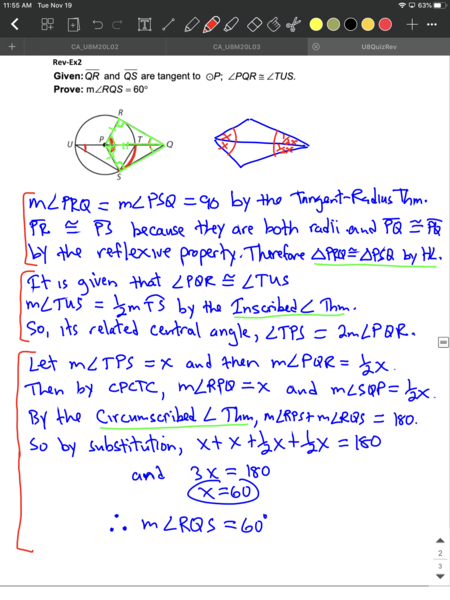 11:55 AM Tue Nov 19
63%
CA_U8M20L02
CA_U8M20L03
U8QuizRev
Rev-Ex2
Given: QR and QS are tangent to ⊙P; ∠PQR ≅ ∠TUS.
Prove: m∠RQS = 60°
R
U
P
T
Q
S
x
x
½x
½x
m∠PRQ = m∠PSQ = 90 by the Tangent-Radius Thm.
PR ≅ PS because they are both radii and PQ ≅ PQ
by the reflexive property. Therefore △PRQ ≅ △PSQ by HL.
It is given that ∠PQR ≅ ∠TUS
m∠TUS = ½mTS by the Inscribed ∠ Thm.
So, its related central angle, ∠TPS = 2m∠PQR.
Let m∠TPS = x and then m∠PQR = ½x.
Then by CPCTC, m∠RPQ = x and m∠SQP = ½x.
By the Circumscribed ∠ Thm, m∠RPS + m∠RQS = 180.
So by substitution, x + x + ½x + ½x = 180
and 3x = 180
x = 60
∴ m∠RQS = 60°
2
3